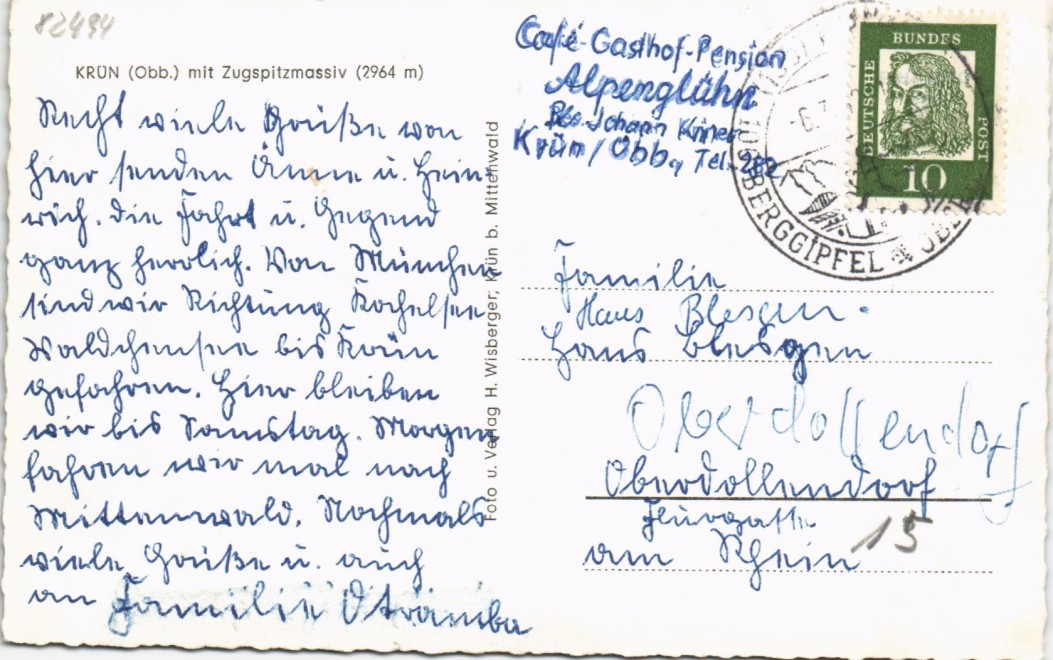 82494
KRÜN (Obb.) mit Zugspitzmassiv (2964 m)
Recht viele Grüße von
hier senden Änne u. Hein-
rich. Die Fahrt u. Gegend
ganz herrlich. Von München
sind wir Richtung Kochelsee
Waldchensee bis Krün
gefahren. Hier bleiben
wir bis Samstag. Morgen
fahren wir mal nach
Mittenwald. Nochmals
viele Grüße u. auch
an Familie Otramba
Foto u. Verlag H. Wisberger, Krün b. Mittenwald
Café-Gasthof-Pension
Alpenglühn
Bes. Johann
Krün/Obb., Tel. 282
DEUTSCHE BUNDES POST
10
BERGGIPFEL
Familie
Hans Blesgen
Hans Blesgen
Oberdollendorf
Oberdollendorf
am Rhein
15